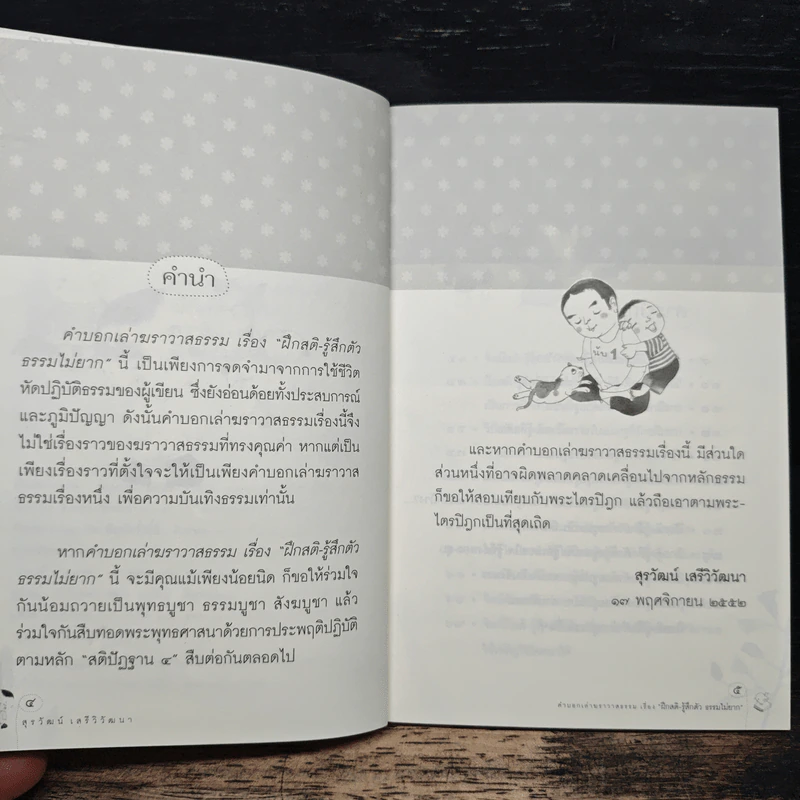 คำนำ
คำบอกเล่าฆราวาสธรรม เรื่อง "ฝึกสติ-รู้สึกตัว
ธรรมไม่ยาก" นี้ เป็นเพียงการจดจำมาจากการใช้ชีวิต
หัดปฏิบัติธรรมของผู้เขียน ซึ่งยังอ่อนด้อยทั้งประสบการณ์
และภูมิปัญญา ดังนั้นคำบอกเล่าฆราวาสธรรมเรื่องนี้จึง
ไม่ใช่เรื่องราวของฆราวาสธรรมที่ทรงคุณค่า หากแต่เป็น
เพียงเรื่องราวที่ตั้งใจจะให้เป็นเพียงคำบอกเล่าฆราวาส
ธรรมเรื่องหนึ่ง เพื่อความบันเทิงธรรมเท่านั้น
หากคำบอกเล่าฆราวาสธรรม เรื่อง "ฝึกสติ-รู้สึกตัว
ธรรมไม่ยาก" นี้ จะมีคุณแม้เพียงน้อยนิด ก็ขอให้ร่วมใจ
กันน้อมถวายเป็นพุทธบูชา ธรรมบูชา สังฆบูชา แล้ว
ร่วมใจกันสืบทอดพระพุทธศาสนาด้วยการประพฤติปฏิบัติ
ตามหลัก "สติปัฏฐาน ๔" สืบต่อกันตลอดไป
๔
สุรวัฒน์ เสรีวิวัฒนา
นับ 1
และหากคำบอกเล่าฆราวาสธรรมเรื่องนี้ มีส่วนใด
ส่วนหนึ่งที่อาจผิดพลาดคลาดเคลื่อนไปจากหลักธรรม
ก็ขอให้สอบเทียบกับพระไตรปิฎก แล้วถือเอาตามพระ-
ไตรปิฎกเป็นที่สุดเถิด
สุรวัฒน์ เสรีวิวัฒนา
๑๗ พฤศจิกายน ๒๕๕๒
๕
คำบอกเล่าฆราวาสธรรม เรื่อง "ฝึกสติ-รู้สึกตัว ธรรมไม่ยาก"